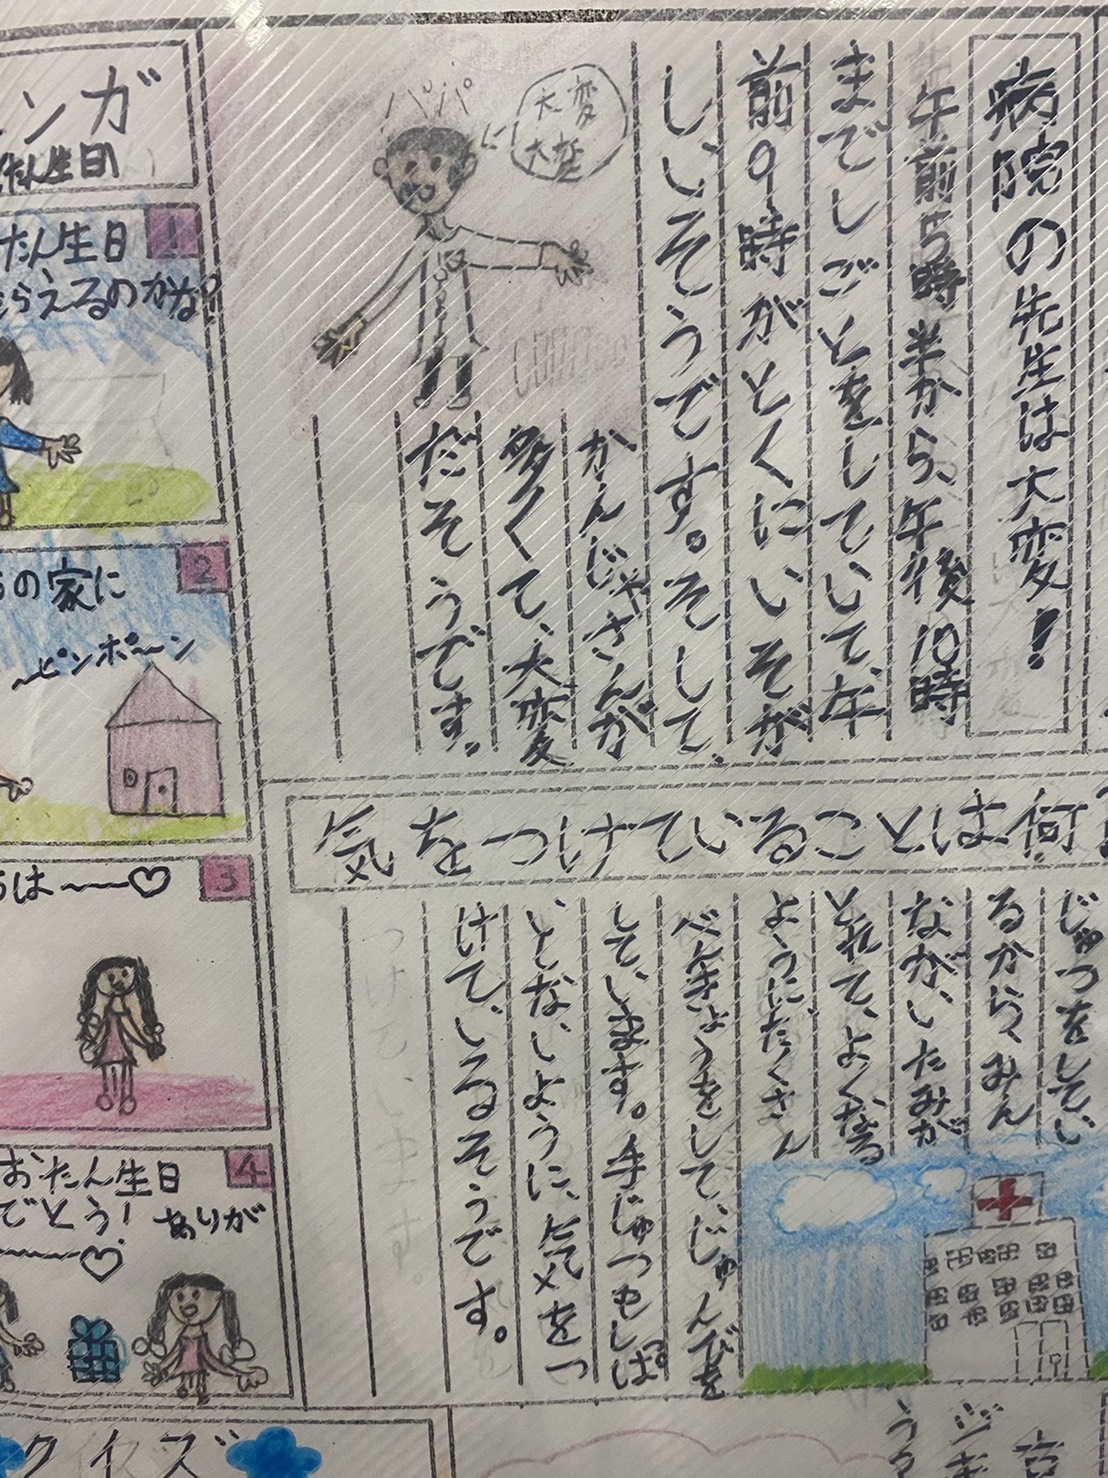 病院の先生は大変!
午前5時半から、午後10時
までしごとをしていて、午
前9時がとくにいそが
しいそうです。そして、
かんじゃさんが
多くて、大変
だそうです。
パパ
大変
大変
気をつけていることは何?
じゅつをしてい
るから、みん
ながいたみが
とれて、よくなる
ようにたくさん
べんきょうをして、じゅんびを
しています。手じゅつもしっぱ
いしないように、気をつ
けているそうです。
ンガ
たん生日
1
たん生日
らえるのかな?
2
の家に
ピンポーン
3
は〜♡
4
おたん生日
でとう!
ありが
〜♡
クイズ